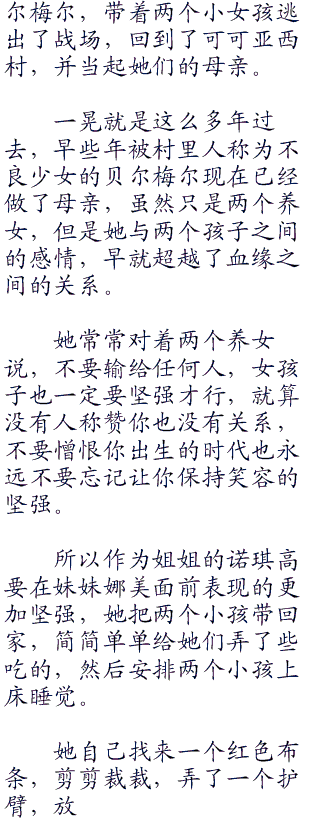 尔梅尔，带着两个小女孩逃
出了战场，回到了可可亚西
村，并当起她们的母亲。
一晃就是这么多年过
去，早些年被村里人称为不
良少女的贝尔梅尔现在已经
做了母亲，虽然只是两个养
女，但是她与两个孩子之间
的感情，早就超越了血缘之
间的关系。
她常常对着两个养女
说，不要输给任何人，女孩
子也一定要坚强才行，就算
没有人称赞你也没有关系，
不要憎恨你出生的时代也永
远不要忘记让你保持笑容的
坚强。
所以作为姐姐的诺琪高
要在妹妹娜美面前表现的更
加坚强，她把两个小孩带回
家，简简单单给她们弄了些
吃的，然后安排两个小孩上
床睡觉。
她自己找来一个红色布
条，剪剪裁裁，弄了一个护
臂，放